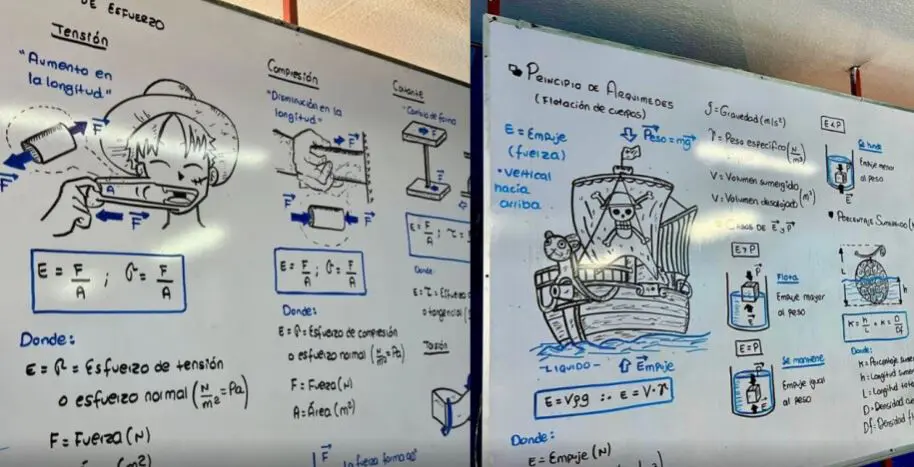 DE ESFUERZO
Tensión
"Aumento en
la longitud"
F
F
A
F
E = F/A ; σ = F/A
Donde:
E = σ = Esfuerzo de tensión
o esfuerzo normal (N/m² = Pa)
F = Fuerza (N)
(m²)
Compresión
"Disminución en la
longitud"
F
F
E = F/A ; σ = F/A
Donde:
E = σ = Esfuerzo de compresión
o esfuerzo normal (N/m² = Pa)
F = Fuerza (N)
A = Área (m²)
F
Cortante
"Cambio de forma
F
F
E = F/A ; τ =
Donde:
E = τ = Esfuerzo
o tangencial
Torsión
Principio de Arquímedes
(Flotación de cuerpos)
E = Empuje
(fuerza)
• vertical
hacia
arriba
Peso = mg
-LIQUIDO-
Empuje
E = Vρg ∴ E = V·γ
Donde:
E = Empuje (N)
g = Gravedad (m/s²)
γ = Peso específico (N/m³)
V = Volumen sumergido
V = Volumen desalojado (m³)
Casos de E y P
E > P
P
E
Flota
Empuje mayor
al peso
E = P
P
E
Se mantiene
Empuje igual
al peso
E < P
P
E
Se hunde
Empuje menor
al peso
• Porcentaje Sumergido
L
h
K = h/L ; K = D/Df
Donde:
K = Porcentaje
h = Longitud
L = Longitud
D = Densidad
Df = Densidad